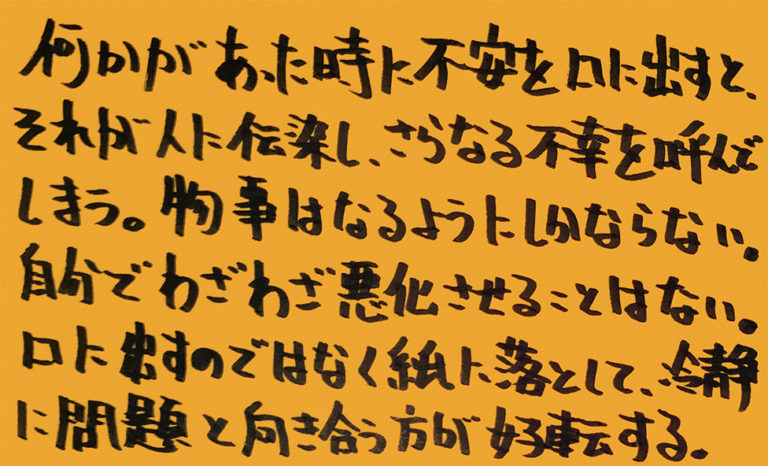 何かがあった時に不安を口に出すと、
それが人に伝染し、さらなる不幸を呼んで
しまう。物事はなるようにしかならない。
自分でわざわざ悪化させることはない。
口に出すのではなく紙に落として、冷静
に問題と向き合う方が好転する。